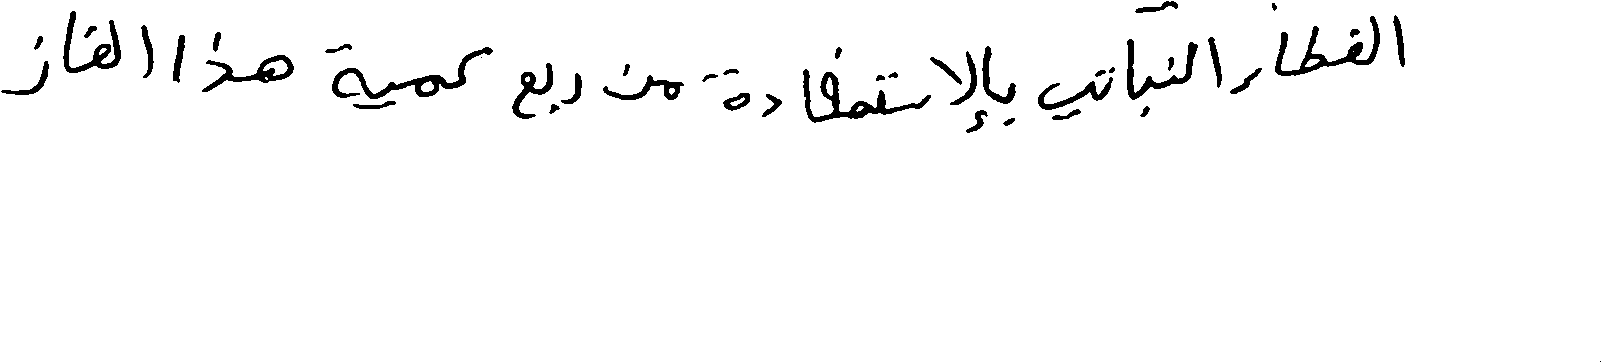 الغطاء النباتي بالإستفادة من ربع كمية هذا الغاز